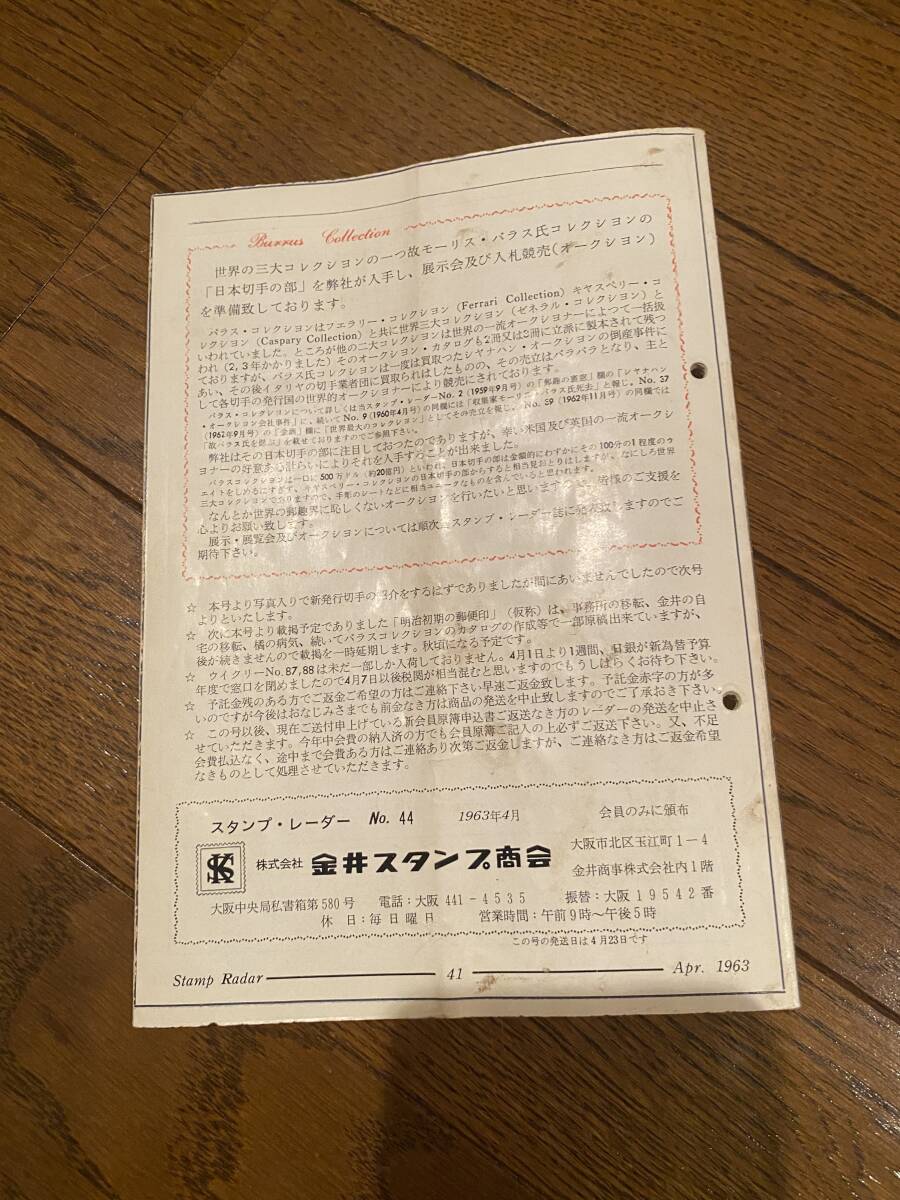 Burrus Collection
世界の三大コレクションの一つ故モーリス・バラス氏コレクションの
「日本切手の部」を弊社が入手し、展示会及び入札競売(オークション)
を準備致しております。
バラス・コレクションはフエラリー・コレクション(Ferrari Collection)キヤスペリー・コ
レクション(Caspary Collection)と共に世界三大コレクション(ゼネラル・コレクション)と
いわれていました。ところが他の二大コレクションは世界の一流オークショナーによつて一括扱
われ(2,3年かかりました)そのオークション・カタログも2冊又は3冊に立派に製本されて残つ
ておりますが、バラス氏コレクションは一度は買取つたシヤナハン・オークションの倒産事件に
あい、その後イタリヤの切手業者団に買取られはしたものの、その売立はバラバラとなり、主と
して各切手の発行国の世界的オークショナーにより競売にされております。
バラス・コレクションについて詳しくは当スタンプ・レーダーNo. 2(1959年9月号)の「郵趣の裏窓」欄の「シヤナハン
・オークション会社事件」に、続いてNo. 9(1960年4月号)の同欄には「収集家モーリス・バラス氏死去」と報じ、No. 37
(1962年9月号)の「金鋏」欄に「世界最大のコレクション」としてその売立を報じ、No. 39(1962年11月号)の同欄では
「故バラス氏を偲ぶ」を載せておりますのでご参照下さい。
弊社はその日本切手の部に注目しておつたのでありますが、幸い米国及び英国の一流オークシ
ョナーの好意ある計らいによりそれを入手することが出来ました。
バラスコレクションは一口に500万ドル(約20億円)といわれ、日本切手の部は金額的にわずかにその100分の1程度のウ
エイトをしめるにすぎず、キヤスペリー・コレクションの日本切手の部からすると相当見おとりはしますが、なにしろ世界
三大コレクションでありますので、手彫のシートなどに相当ユニークなものを含んでいると思われます。
なんとか世界の郵趣界に恥しくないオークションを行いたいと思いますので、皆様のご支援を
心よりお願い致します。
展示・展覧会及オークションについては順次スタンプ・レーダー誌に発表致しますのでご
期待下さい。
☆ 本号より写真入りで新発行切手の紹介をするはずでありましたが間にあいませんでしたので次号
よりといたします。
☆ 次に本号より載掲予定でありました「明治初期の郵便印」(仮称)は、事務所の移転、金井の自
宅の移転、橘の病気、続いてバラスコレクションのカタログの作成等で一部原稿出来ていますが、
後が続きませんので載掲を一時延期します。秋頃になる予定です。
☆ ウイクリーNo. 87, 88は未だ一部しか入荷しておりません。4月1日より1週間、日銀が新為替予算
年度で窓口を閉めましたので4月7日以後税関が相当混むと思いますのでもうしばらくお待ち下さい。
☆ 予託金残のある方でご返金ご希望の方はご連絡下さい早速ご返金致します。予託金赤字の方が多
いのですが今後はおなじみさまでも前金なき方は商品の発送を中止致しますのでご了承おき下さい。
☆ この号以後、現在ご送付申上げている新会員原簿申込書ご返送なき方のレーダーの発送を中止さ
せていただきます。今年中会費の納入済の方でも会員原簿ご記入の上必ずご返送下さい。又、不足
会費払込なく、途中まで会費ある方はご連絡あり次第ご返金しますが、ご連絡なき方はご返金希望
なきものとして処理させていただきます。
スタンプ・レーダー No. 44 1963年4月 会員のみに頒布
SK 株式会社 金井スタンプ商会
大阪市北区玉江町1-4
金井商事株式会社内1階
大阪中央局私書箱第580号 電話:大阪 441-4535 振替:大阪19542番
休日:毎日曜日 営業時間:午前9時〜午後5時
この号の発送日は4月23日です
Stamp Radar 41 Apr. 1963